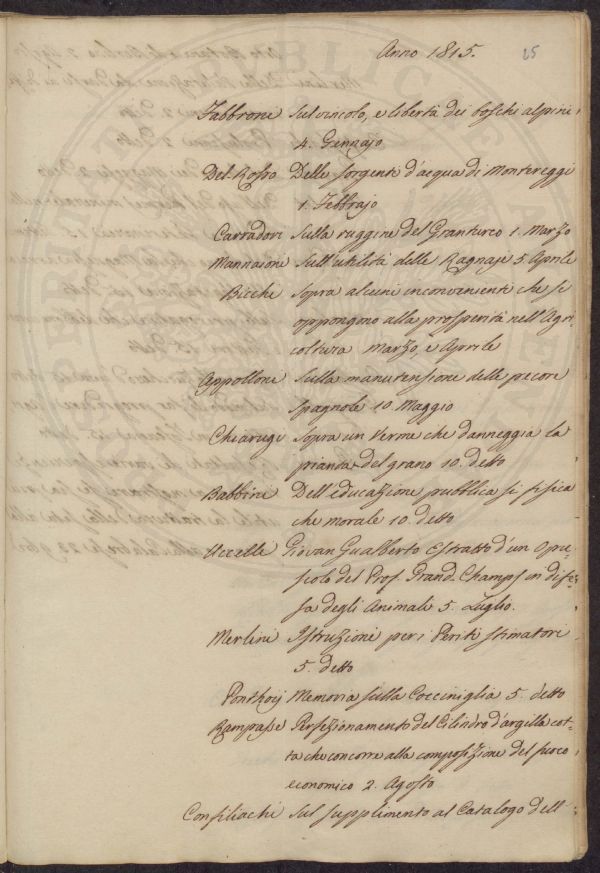 Anno 1815.
25
Fabbroni Sul vincolo, e libertà dei boschi alpini
4. Gennajo
Del Rosso Delle sorgenti d'acqua di Montereggi
1. Febbrajo
Carradori Sulla ruggine del Granturco 1. Marzo
Mannaioni Sull'utilità delle Ragnaje 5 Aprile
Bicchi Sopra alcuni inconvenienti che si
oppongono alla prosperità nell'Agri-
coltura Marzo, e Aprile
Appolloni Sulla manutensione delle pecore
Spagnole 10 Maggio
Chiarugi Sopra un Verme che danneggia la
pianta del grano 10. detto
Babbini Dell'educazione pubblica sì fisica
che morale 10. detto
Uccelli Giovan Gualberto Estratto d'un Opu-
scolo del Prof. Grand-Champs in dife-
sa degli Animali 5. Luglio.
Merlini Istruzioni per i Periti stimatori
5. detto
Ponthoij Memoria sulla Cocciniglia 5. detto
Rampasse Perfezionamento del Cilindro d'argilla cot-
ta che concorre alla composizione del fuoco
economico 2. Agosto
Configliachi Sul supplimento al Catalogo dell'